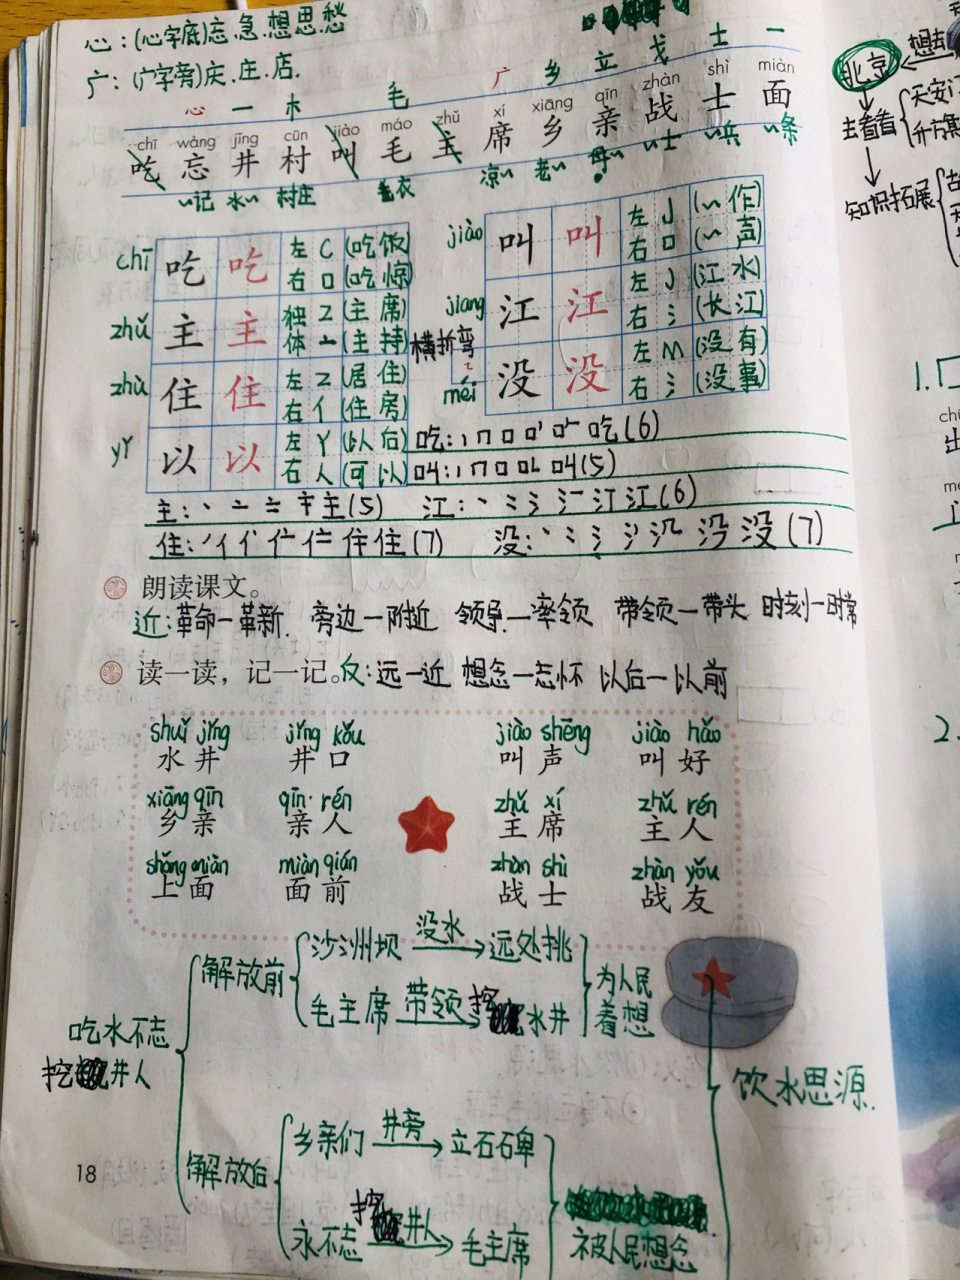 心：(心字底)忘.急.想思愁
广：(广字旁)庆.庄.店.
心 一 木 毛 广 乡 立 戈 士 一
chī wàng jǐng cūn jiào máo zhǔ xí xiāng qīn zhàn shì miàn
吃 忘 井 村 叫 毛 主 席 乡 亲 战 士 面
~记 水~ 村庄 毛衣 凉~ 老~ 母~ ~士 ~兵 ~条
chī 吃 吃 左 C (吃饭)
右 口 (吃惊)
zhǔ 主 主 独 Z (主席)
体 亠 (主持)
zhù 住 住 左 Z (居住)
右 亻 (住房)
yǐ 以 以 左 Y (以后)
右 人 (可以)
jiào 叫 叫 左 J (~作)
右 口 (~声)
jiang 江 江 左 J (江水)
右 氵 (长江)
横折弯
méi 没 没 左 M (没有)
右 氵 (没事)
吃：丨 冂 口 吃(6)
叫：丨 冂 口 叫(5)
主：丶 亠 主(5) 江：丶 氵 江(6)
住：丿 亻 住(7) 没：丶 氵 没(7)
朗读课文。
近：革命一革新. 旁边一附近 领导一率领 带领一带头 时刻一时常
读一读，记一记。反：远一近 想念一忘怀 以后一以前
shuǐ jǐng jǐng kǒu jiào shēng jiào hǎo
水井 井口 叫声 叫好
xiāng qīn qīn rén zhǔ xí zhǔ rén
乡亲 亲人 主席 主人
shàng miàn miàn qián zhàn shì zhàn yǒu
上面 面前 战士 战友
吃水不忘
挖井人
解放前
沙洲坝 没水 远处挑
毛主席 带领 挖水井
为人民
着想
解放后
乡亲们 井旁 立石碑
永不忘 挖井人 毛主席
被人民想念
饮水思源.
18
北京
想去
去看看
天安门
知识拓展
1.
出
2.